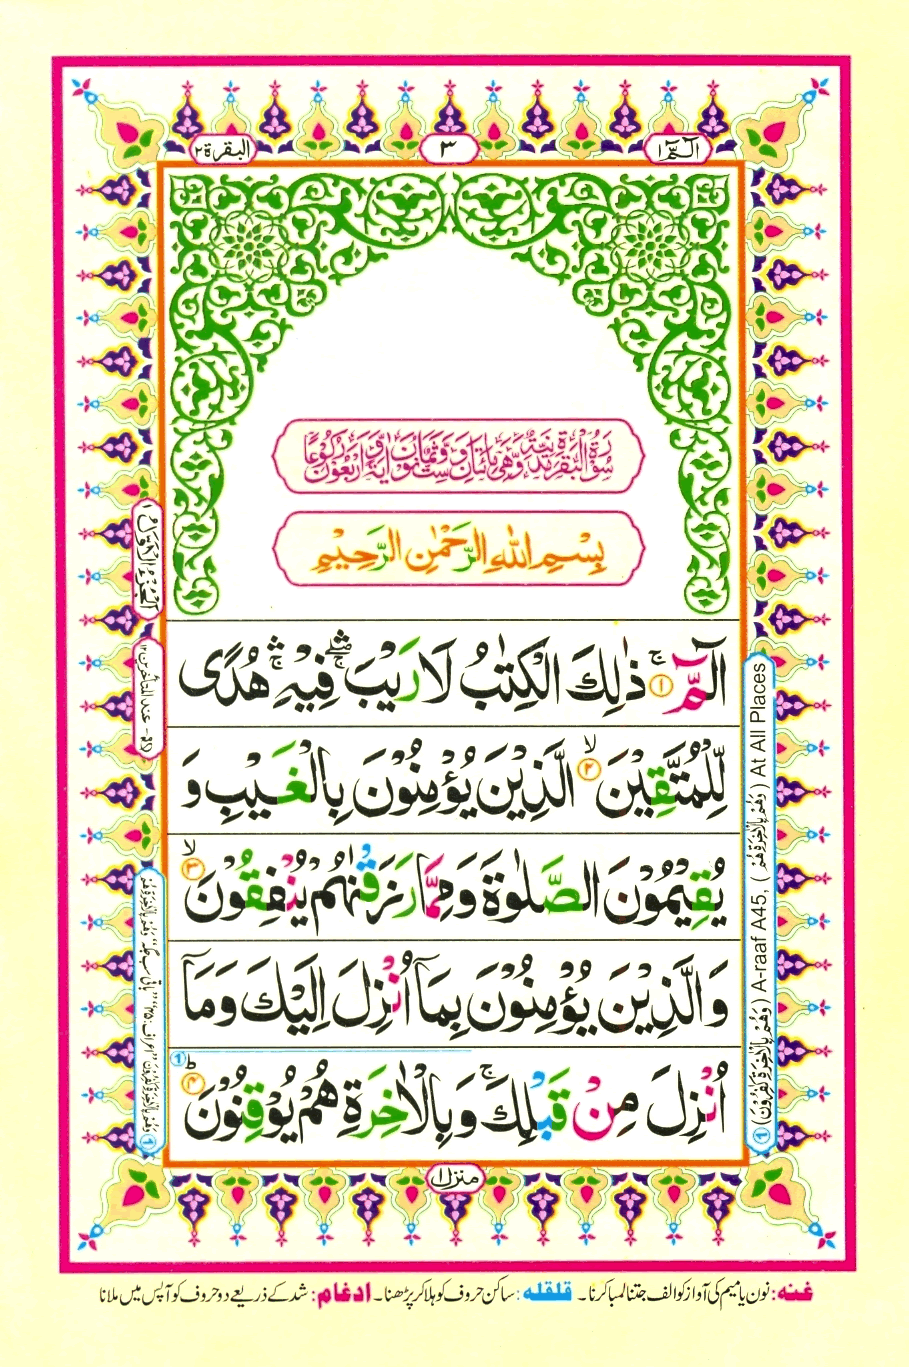 الٓمّٓ ١
٣
البقرة ٢
سُوْرَةُ الْبَقَرَةِ مَدَنِيَّةٌ وَّهِيَ مِائَتَانِ وَسِتٌّ وَّثَمَانُوْنَ اٰيَةً وَّاَرْبَعُوْنَ رُكُوْعًا
بِسْمِ اللّٰهِ الرَّحْمٰنِ الرَّحِيْمِ
الٓمّٓ ۚ ۝١ ذٰلِكَ الْكِتٰبُ لَا رَيْبَ ۛۖۚ فِيْهِ ۛۚ هُدًى
لِّلْمُتَّقِيْنَ ۙ ۝٢ الَّذِيْنَ يُؤْمِنُوْنَ بِالْغَيْبِ وَ
يُقِيْمُوْنَ الصَّلٰوةَ وَمِمَّا رَزَقْنٰهُمْ يُنْفِقُوْنَ ۙ ۝٣
وَالَّذِيْنَ يُؤْمِنُوْنَ بِمَاۤ اُنْزِلَ اِلَيْكَ وَمَاۤ
اُنْزِلَ مِنْ قَبْلِكَ ۚ وَبِالْاٰخِرَةِ هُمْ يُوْقِنُوْنَ ؕ ۝٤
① (وَهُمْ بِالْاٰخِرَةِ كٰفِرُوْنَ) A-raaf A45, (وَهُمْ بِالْاٰخِرَةِ هُمْ) At All Places
منزل ١
غنه: نون یا میم کی آواز کو الف جتنا لمبا کرنا۔ قلقله: ساکن حروف کو ہلا کر پڑھنا۔ ادغام: شد کے ذریعے دو حروف کو آپس میں ملانا